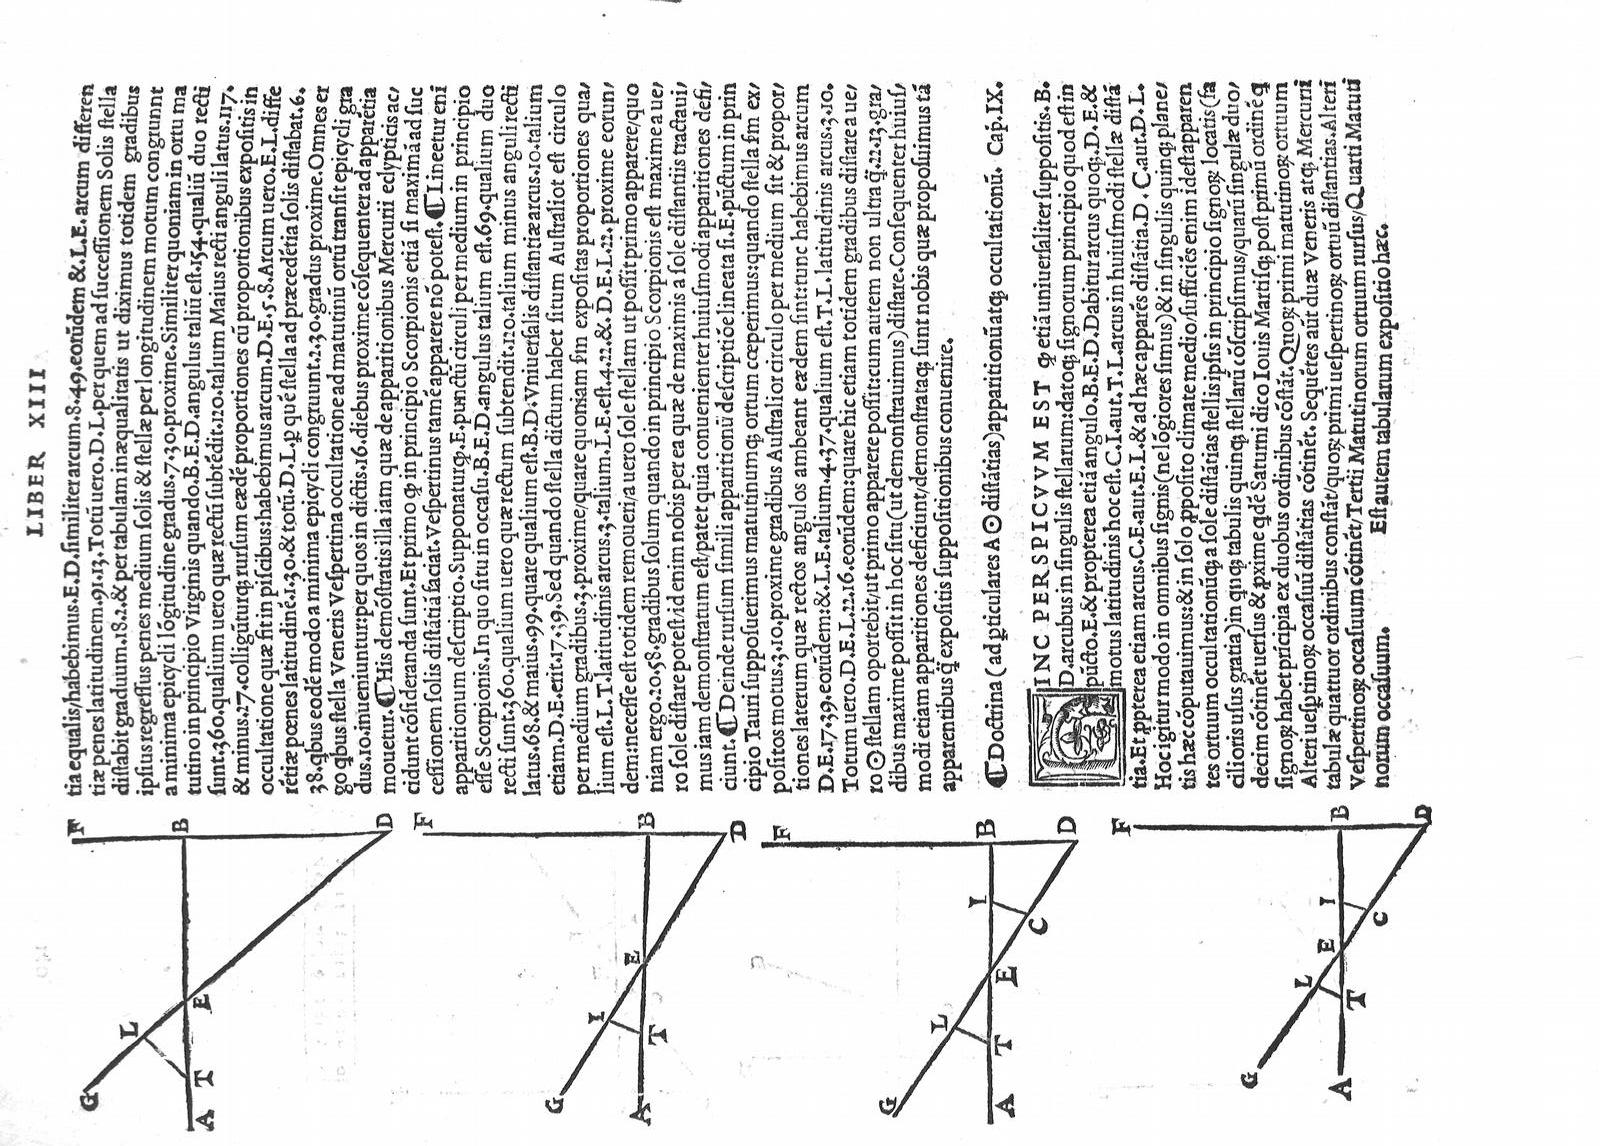 LIBER XIII
tia equalis/habebimus.E.D.similiter arcum.8.49.eorũdem &.L.E.arcum differen
tiæ penes latitudinem.91.13.Totũ uero.D.L.per quem ad successionem Solis stella
distabit graduum.18.2.& per tabulam inæqualitatis ut diximus totidem gradibus
ipsius regressus penes medium solis & stellæ per longitudinem motum congrunnt
a minima epicycli lõgitudine gradus.7.30.proxime.Similiter quoniam in ortu ma
tutino in principio Virginis quando.B.E.D.angulus taliũ est.154.qualiũ duo recti
sunt.360.qualium uero quæ rectũ subtẽdit.120.talium Maius recti anguli latus.117.
& minus.27.colligũturq; rursum eædẽ proportiones cũ proportionibus expositis in
occultatione quæ fit in piscibus:habebimus arcum.D.E.5.8.Arcum uero.E.L.diffe
rẽtiæ pœnes latitudinẽ.1.30.& totũ.D.L.ꝑ quẽ stella ad præcedẽtia solis distabat.6.
38.qbus eodẽ modo a minima epicycli congruunt.2.30.gradus proxime.Omnes er
go qbus stella Veneris Vespertina occultatione ad matutinũ ortũ transit epicycli gra
dus.10.inueniuntur:per quos in dictis.16.diebus proxime cõsequenter ad apparẽtia
mouetur.¶His demõstratis illa iam quæ de apparitionibus Mercurii eclypticis ac/
cidunt cõsideranda sunt.Et primo ꝙ in principio Scorpionis etiã si maximã ad suc
cessionem solis distãtiã faciat.Vespertinus tamẽ apparere nõ potest.¶Lineetur eni
apparitionum descriptio.Supponaturq;.E.punctũ circuli per medium in principio
esse Scorpionis.In quo situ in occasu.B.E.D.angulus talium est.69.qualium duo
recti sunt.360.qualium uero quæ rectum subtendit.120.talium minus anguli recti
latus.68.& maius.99.quare qualium est.B.D.Vniuersalis distantiæ arcus.10.talium
etiam.D.E.erit.17.39.Sed quando stella dictum habet situm Australiot est circulo
per medium gradibus.3.proxime/quare quoniam ſm expositas proportiones qua/
lium est.L.T.latitudinis arcus.3.talium.L.E.est.4.22.&.D.E.L.22.proxime eorum/
dem:necesse est totidem remoueri/a uero sole stellam ut possit primo apparere/quo
niam ergo.20.58.gradibus solum quando in principio Scorpionis est maxime a ue/
ro sole distare potest/id enim nobis per ea quæ de maximis a sole distantiis tractaui/
mus iam demonstratum est/patet quia conuenienter huiusmodi apparitiones defi/
ciunt.¶Deinde rursum simili apparitionũ descriptiõe lineata si.E.pũctum in prin
cipio Tauri supposuerimus matutinumq; ortum cœperimus:quando stella ſm ex/
positos motus.3.10.proxime gradibus Australior circulo per medium fit & propor/
tiones laterum quæ rectos angulos ambeant eædem sint:tunc habebimus arcum
D.E.17.39.eorũdem:&.L.E.talium.4.37.qualium est.T.L.latitudinis arcus.3.10.
Totum uero.D.E.L.22.16.eorũdem:quare hic etiam totidem gradibus distare a ue/
ro ☉ stellam oportebit/ut primo apparere possit:cum autem non ultra q̃.22.13.gra/
dibus maxime possit in hoc situ(ut demonstrauimus)distare.Consequenter huius/
modi etiam apparitiones deficiunt/demonstrataq; sunt nobis quæ proposuimus tã
apparentibus q̃ expositis suppositionibus conuenire.
¶Doctrina (ad ꝑticulares A ☉ distãtias)apparitionũatq; occultationũ. Cap.IX.
HINC PERSPICVVM EST ꝙ etiã uniuersaliter suppositis.B.
D.arcubus in singulis stellarum:datoq; signorum principio quod est in
pũcto.E.& propterea etiã angulo.B.E.D.Dabitur arcus quoq;.D.E.&
motus latitudinis hoc est.C.I.aut.T.L.arcus in huiusmodi stellæ distã
tia.Et ꝓpterea etiam arcus.C.E.aut.E.L.& ad hæc apparẽs distãtia.D.C.aut.D.L.
Hoc igitur modo in omnibus signis(ne lõgiores simus)& in singulis quinq; plane/
tis hæc cõputauimus:& in solo ꝓposito climate medio/sufficiẽs enim id est apparen
tes ortuum occultationũq; a sole distãtias stellis ipsis in principio signoꝝ locatis(fa
cilioris usus gratia)in qnq; tabulis quinq; stellarũ cõscripsimus/quarũ singulæ duo/
decim cõtinẽt uersus & ꝓxime qdẽ Saturni dico Iouis Martisq; post primũ ordinẽ q
signoꝝ habet pricipia ex duobus ordinibus cõstãt.Quoꝝ primi matutinoꝝ ortuum
Alteri uesptinoꝝ occasuũ distãtias cõtinẽt.Sequẽtes aũt duæ Veneris atq; Mercurii
tabulæ quattuor ordinibus constãt/quoꝝ primi uespertinoꝝ ortuũ distantias.Alteri
Vespertinoꝝ occasuum cõtinẽt/Tertii Matutinorum ortuum rursus/Quarti Matuti
norum occasuum. Est autem tabularum expositio hæc.
F B D
L E
G T A
F B D
I E
G T A
F B D
I C
L E
G T A
F B D
I C
L E
G T A